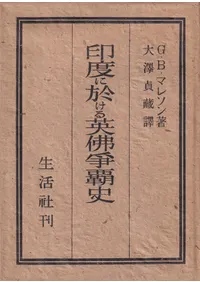 G・B・マレソン著
大澤貞藏譯
印度に於ける英佛爭覇史
生活社刊